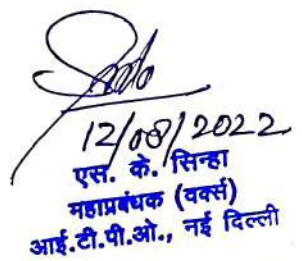 12/08/2022
एस. के. सिन्हा
महाप्रबंधक (वर्क्स)
आई.टी.पी.ओ., नई दिल्ली